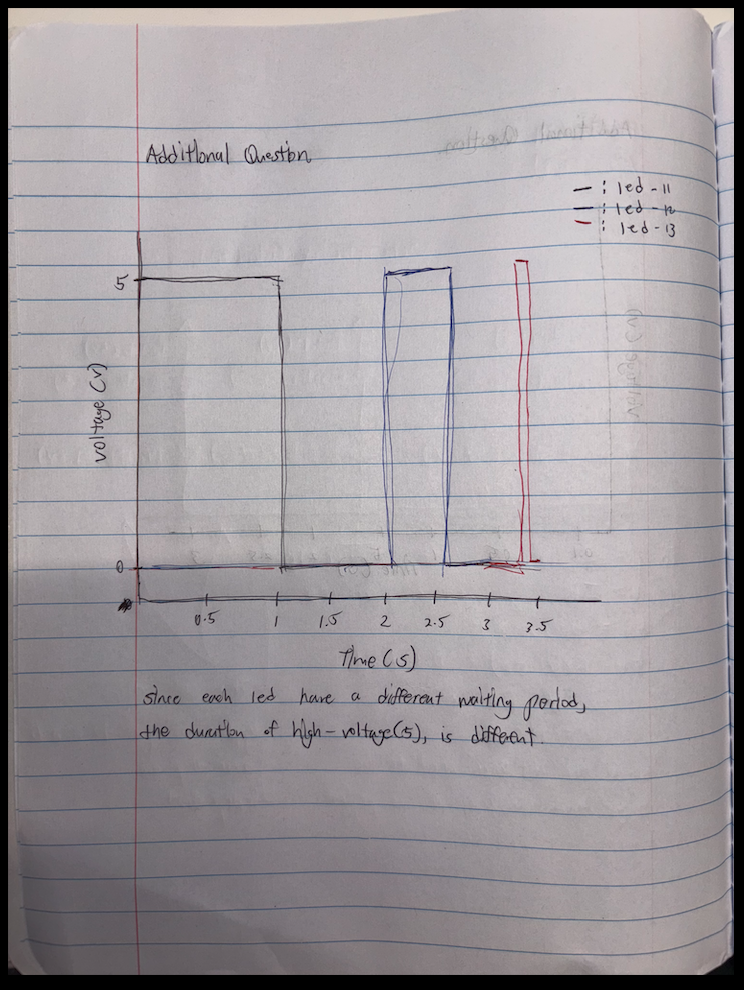 Additional Question
— : led-11
— : led-12
— : led-13
5
voltage (v)
0
0.5 1 1.5 2 2.5 3 3.5
Time (s)
since each led have a different waiting period,
the duration of high-voltage(5), is different.